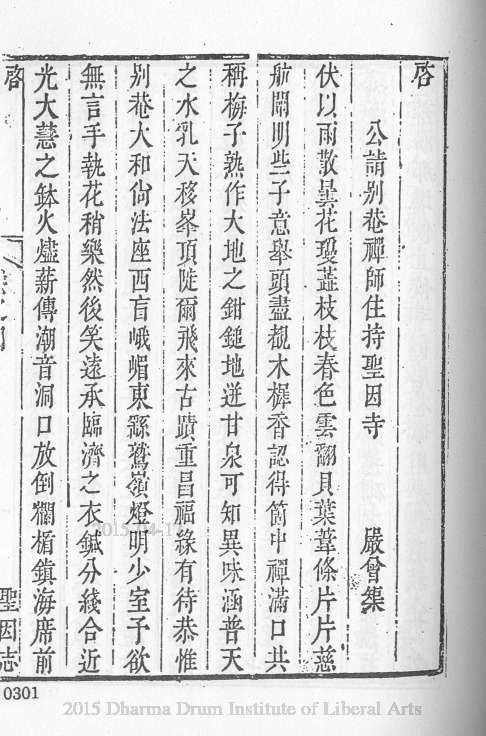 啓
公請别菴禪師住持聖因寺
嚴曾榘
伏以雨散曇花瓊蘂枝枝春色雲翻貝葉葦條片片慈
航開明些子意舉頭盡覩木樨香認得箇中禪滿口共
稱梅子熟作大地之鉗鎚地迸甘泉可知異味涵普天
之水乳天移峯頂陡爾飛來古蹟重昌福緣有待恭惟
别菴大和尙法座西盲峨嵋東繇鷲嶺燈明少室予欲
無言手執花稍樂然後笑遠承臨濟之衣鍼分綫合近
光大慧之鉢火燼薪傳潮音洞口放倒襴楯鎮海席前
啓
聖因志
0301
2015-04-1
2015 Dharma Drum Institute of Liberal Arts